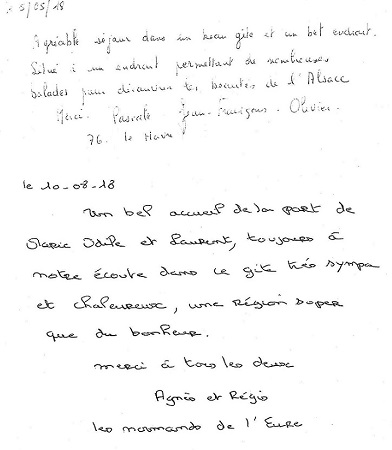 5/05/18
Agréable séjour dans un beau gite et un bel endroit.
Situé à un endroit permettant de nombreuses
balades pour découvrir les beautés de l'Alsace
Merci. Pascale Jean-François - Olivier.
76. Le Havre
le 10-08-18
Un bel accueil de la part de
Marie Odile et Laurent, toujours à
notre écoute dans ce gite très sympa
et chaleureux, une région super
que du bonheur.
merci à tous les deux
Agnès et Régis
les normands de l'Eure